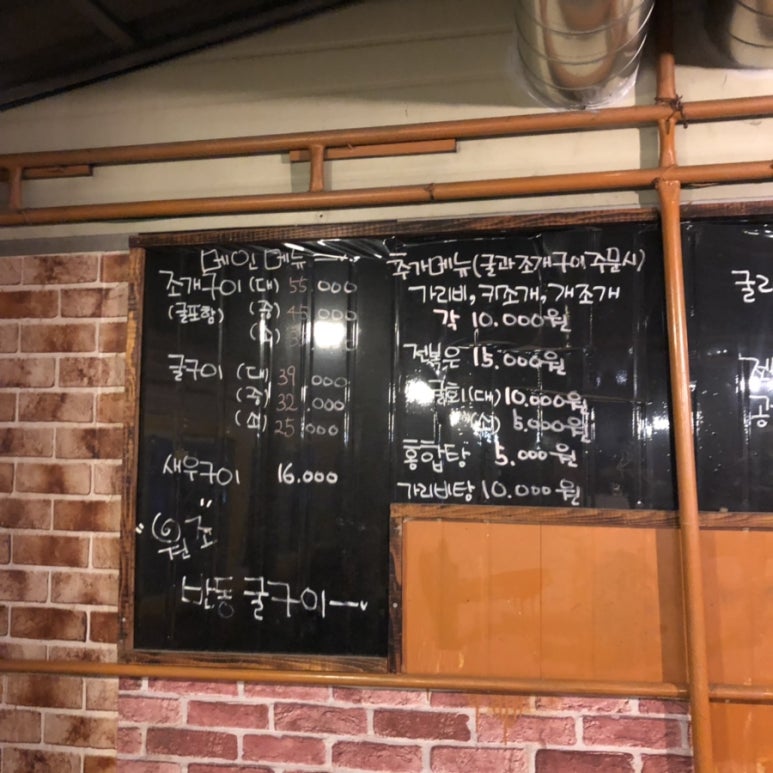 메인 메뉴
조개구이 (대) 55.000
(굴포함) (중) 45.000
(소)
굴구이 (대) 39.000
(중) 32.000
(소) 25.000
새우구이 16.000
"원조"
반동 굴구이
추가메뉴(굴과 조개구이 주문시)
가리비, 키조개, 개조개
각 10.000원
전복은 15.000원
굴회(대) 10.000원
(소) 5.000원
홍합탕 5.000원
가리비탕 10.000원